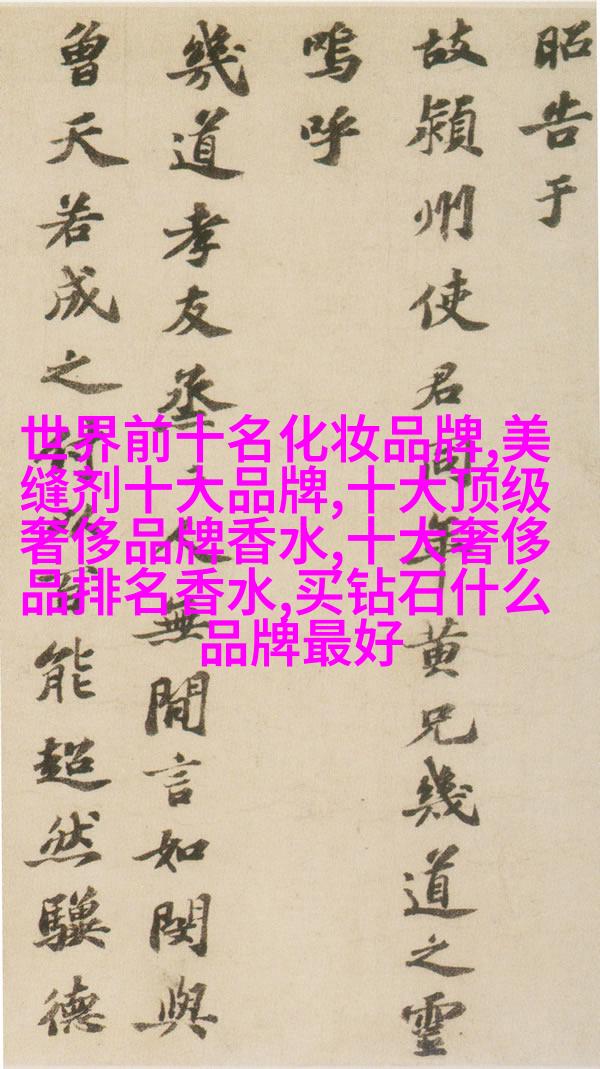 昭告于
故潁州使君同年黄兄幾道之靈
嗚呼
幾道孝友烝人無閒言如閔與
曾天若成之能超然驥德
世界前十名化妆品牌,美
缝剂十大品牌,十大顶级
奢侈品牌香水,十大奢侈
品排名香水,买钻石什么
品牌最好